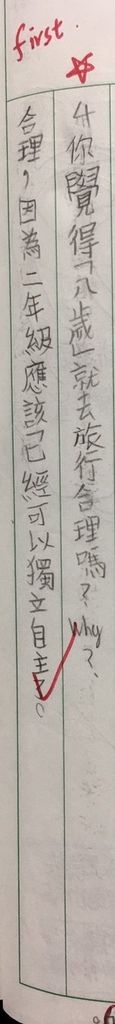 first.
4.你覺得「八歲」就去旅行合理嗎？Why？
合理，因為二年級應該已經可以獨立自主了。